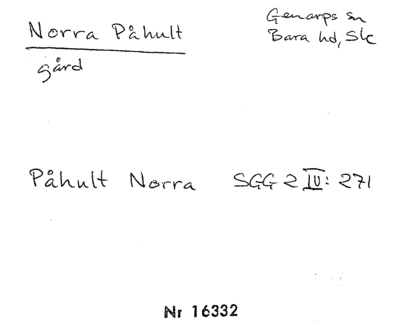 Norra Påhult
Genarps sn
Bara hd, Sk
gård
Påhult Norra SGG 2 IV: 271
Nr 16332